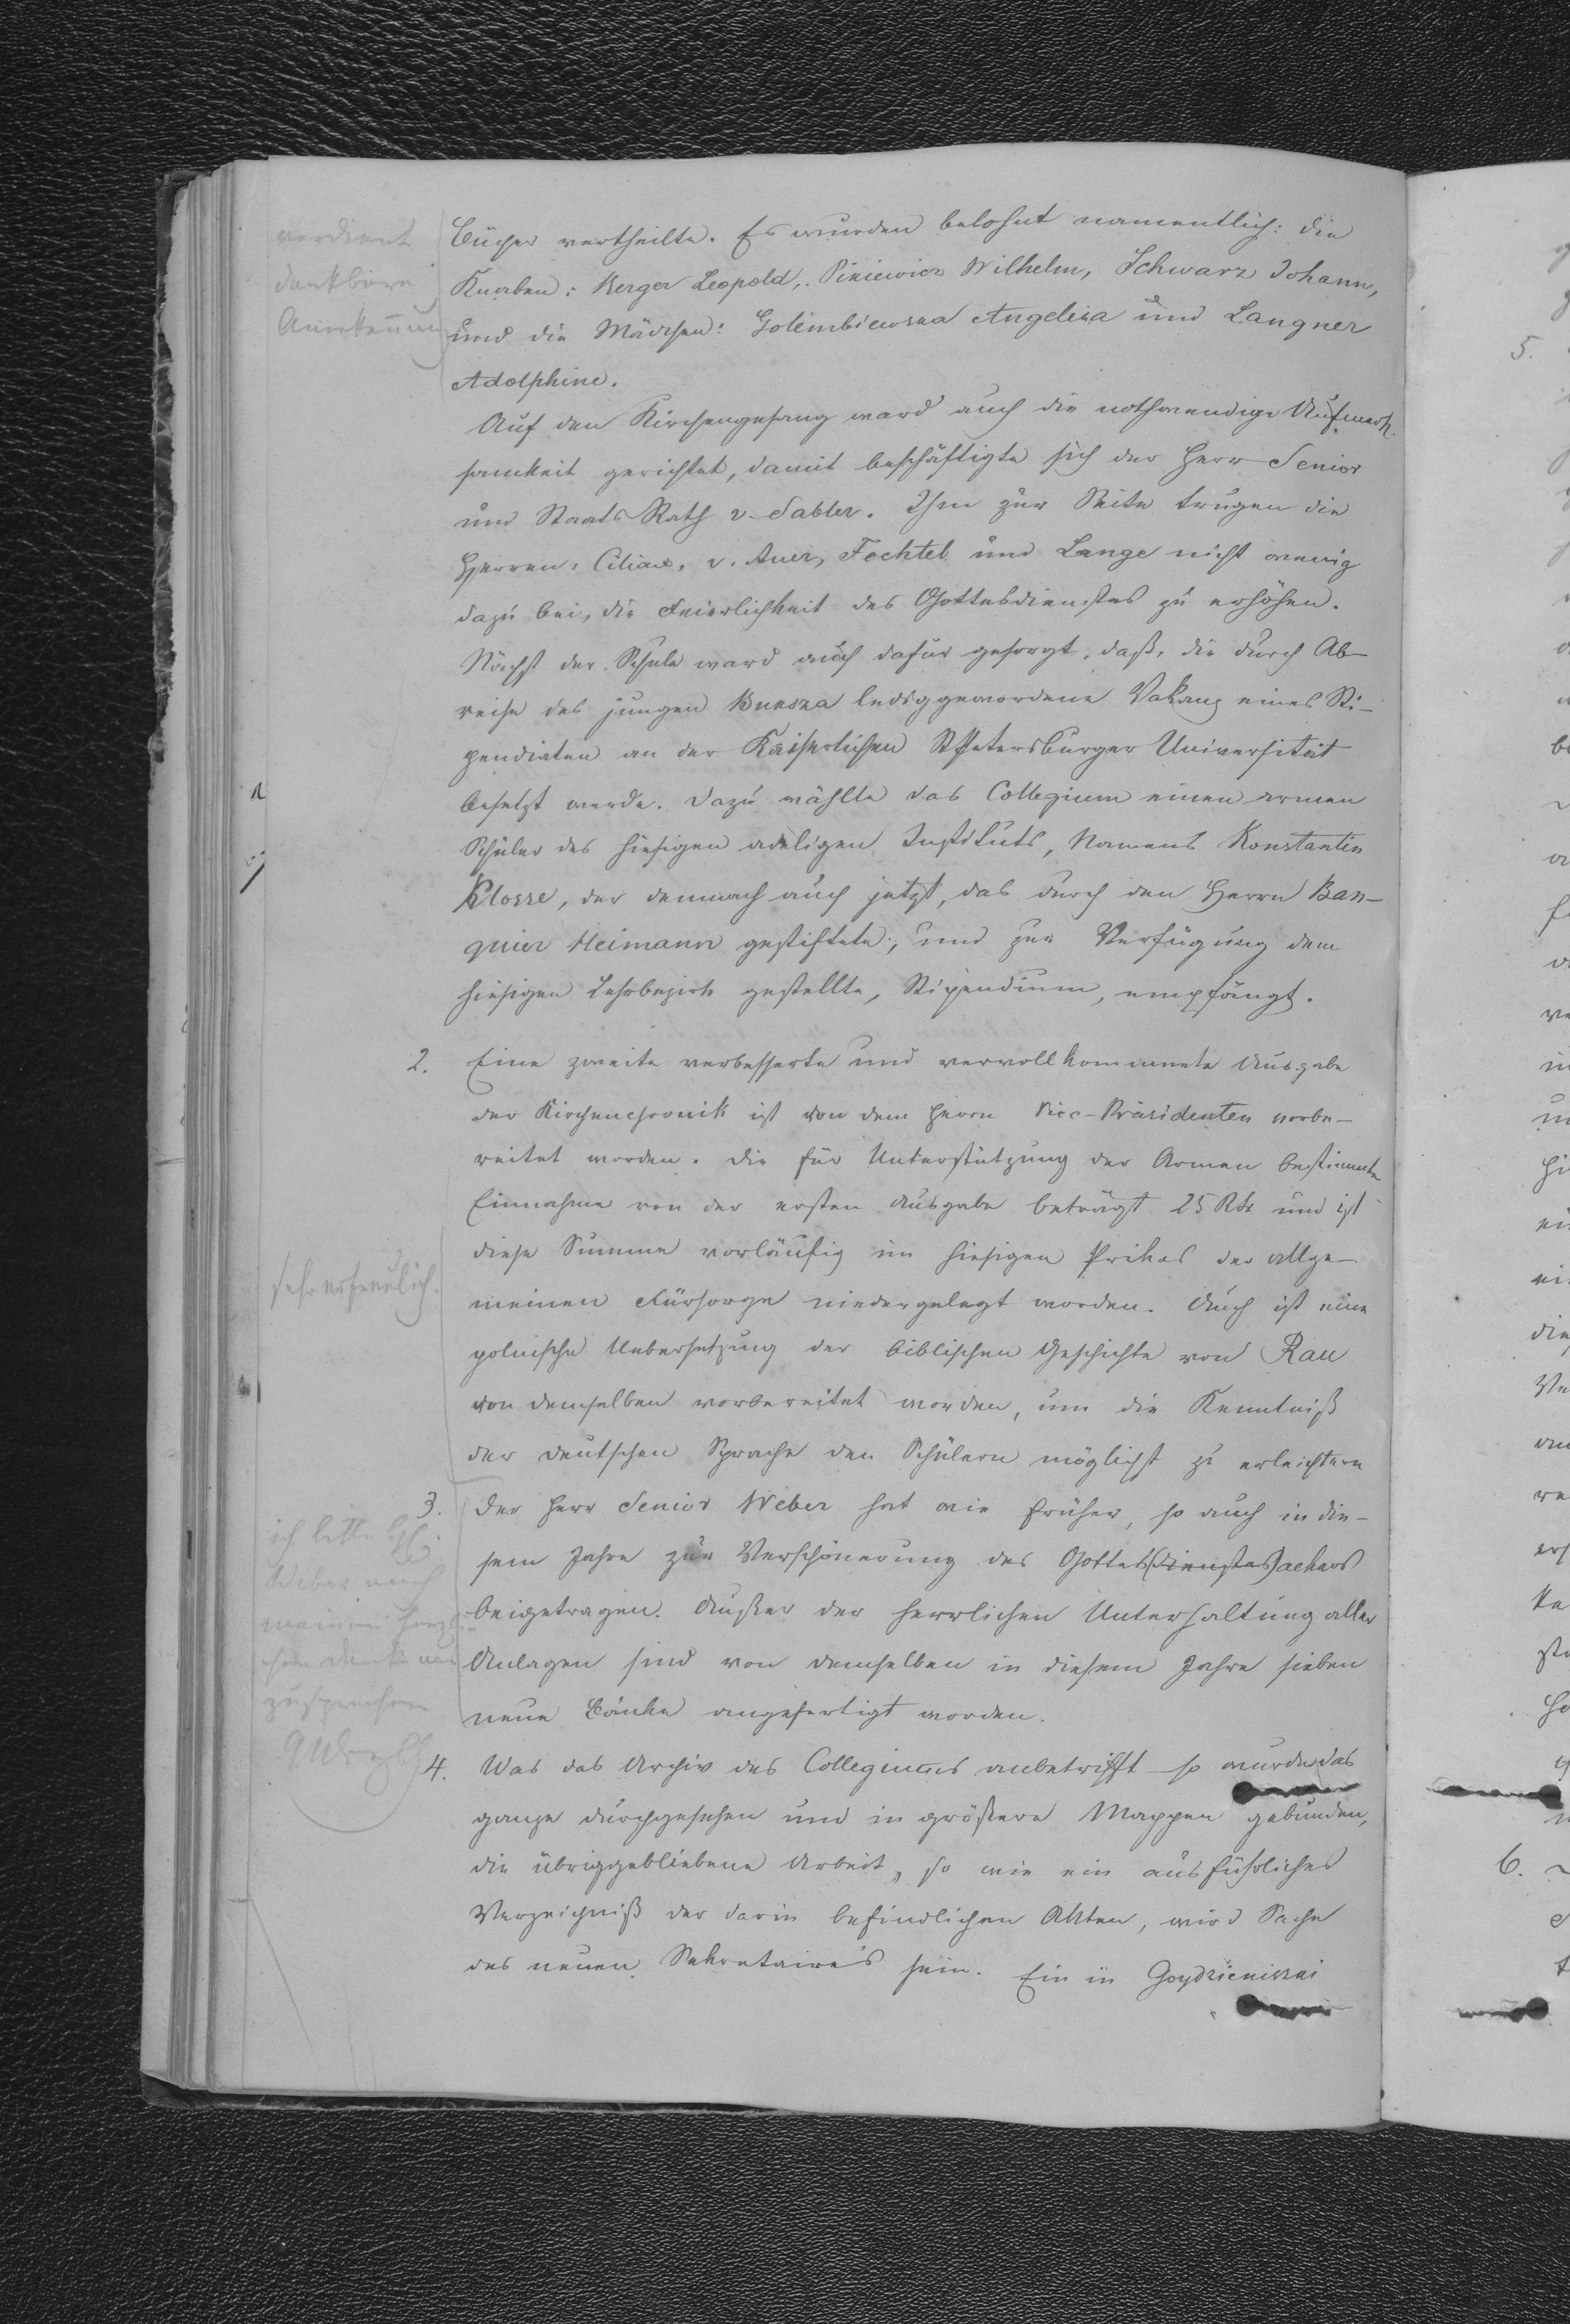 verdient
dankbare
Anerkennung
Bücher vertheilte. Es wurden belohnt namentlich: die
Knaben: Berger Leopold, Pikiewicz Wilhelm, Schwarz Johann,
und die Mädchen: Golembiewska Angelica und Langner
Adolphine.
Auf den Kirchengesang ward auch die nothwendige Aufmerk-
samkeit gerichtet, damit beschäftigte sich der Herr Senior
und Staats Rath v. Sabler. Ihm zur Seite trugen die
Herren: Ciliax, v. Auer, Fechtel und Lange nicht wenig
dazu bei, die Feierlichkeit des Gottesdienstes zu erhöhen.
Nächst der Schule ward auch dafür gesorgt, daß, die durch Ab-
reise des jungen ledig gewordene Vakanz eines Sti-
pendiaten an der Kaiserlichen St Petersburger Universität
besetzt werde. Dazu wählte das Collegium einen armen
Schüler des hiesigen adeligen Instituts, Namens Konstantin
Klosse, der demnach auch jetzt, das durch den Herrn Ban-
quier Heimann gestiftete, und zur Verfügung dem
hiesigen Lehrbezirk gestellte, Stipendium, empfängt.
2. Eine zweite verbesserte und vervollkommnete Ausgabe
der Kirchenchronik ist von dem Herrn Vice-Präsidenten vorbe-
reitet worden. Die für Unterstützung der Armen bestimmte
Einnahme von der ersten Ausgabe beträgt 25 Rbl und ist
diese Summe vorläufig im hiesigen Prikas der allge-
sehr erfreulich.
meinen Fürsorge niedergelegt worden. Auch ist eine
polnische Uebersetzung der biblischen Geschichte von Rau
von demselben vorbereitet worden, um die Kenntniß
der deutschen Sprache den Schülern möglichst zu erleichtern
3. Der Herr Senior Weber hat wie früher, so auch in die-
ich bitte H.
Weber auch
meinen herzli-
chen Dank aus
zusprechen
sem Jahre zur Verschönerung des Gottes(dienstes)ackers
beigetragen. Außer der herrlichen Unterhaltung aller
Anlagen sind von demselben in diesem Jahre sieben
neue Bänke angefertigt worden.
4. Was das Archiv des Collegiums anbetrifft so wurde das
ganze durchgesehen und in größere Mappen gebunden,
die übriggebliebene Arbeit, so wie ein ausführliches
Verzeichniß der darin befindlichen Akten, wird Sache
des neuen Sekretaire's sein. Ein in Goydzieniszki
5.
6.